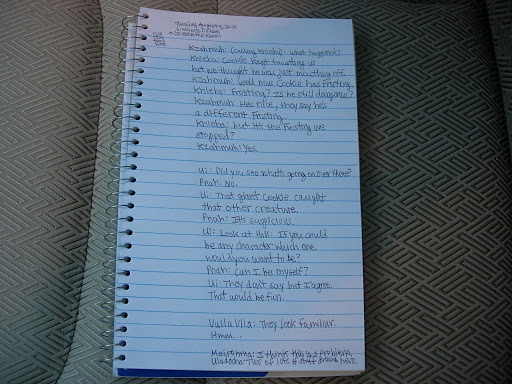 Tuesday August 4, 20
Kzahmuh: (calling Knieba): what happened?
Knieba: Cookie kept taunting us
but we thought he was just mouthing off.
Kzahmuh: Well now Cookie has Frosting.
Knieba: Frosting? Is he still dangerous?
Kzahmuh: He's nice, they say he's
a different Frosting.
Knieba: but it's the Frosting we
stopped?
Kzahmuh: Yes.
Ui: Did you see what's going on over there?
Pnah: No.
Ui: That giant Cookie caught
that other creature.
Pnah: It's suspicious.
Ui: Look at this: If you could
be any character which one
would you want to be?
Pnah: Can I be myself?
Ui: They don't say but I agree.
That would be fun.
Vulla Vila: They look familiar.
Hmm...
I things this is a problem.
of lots of stuff around here.